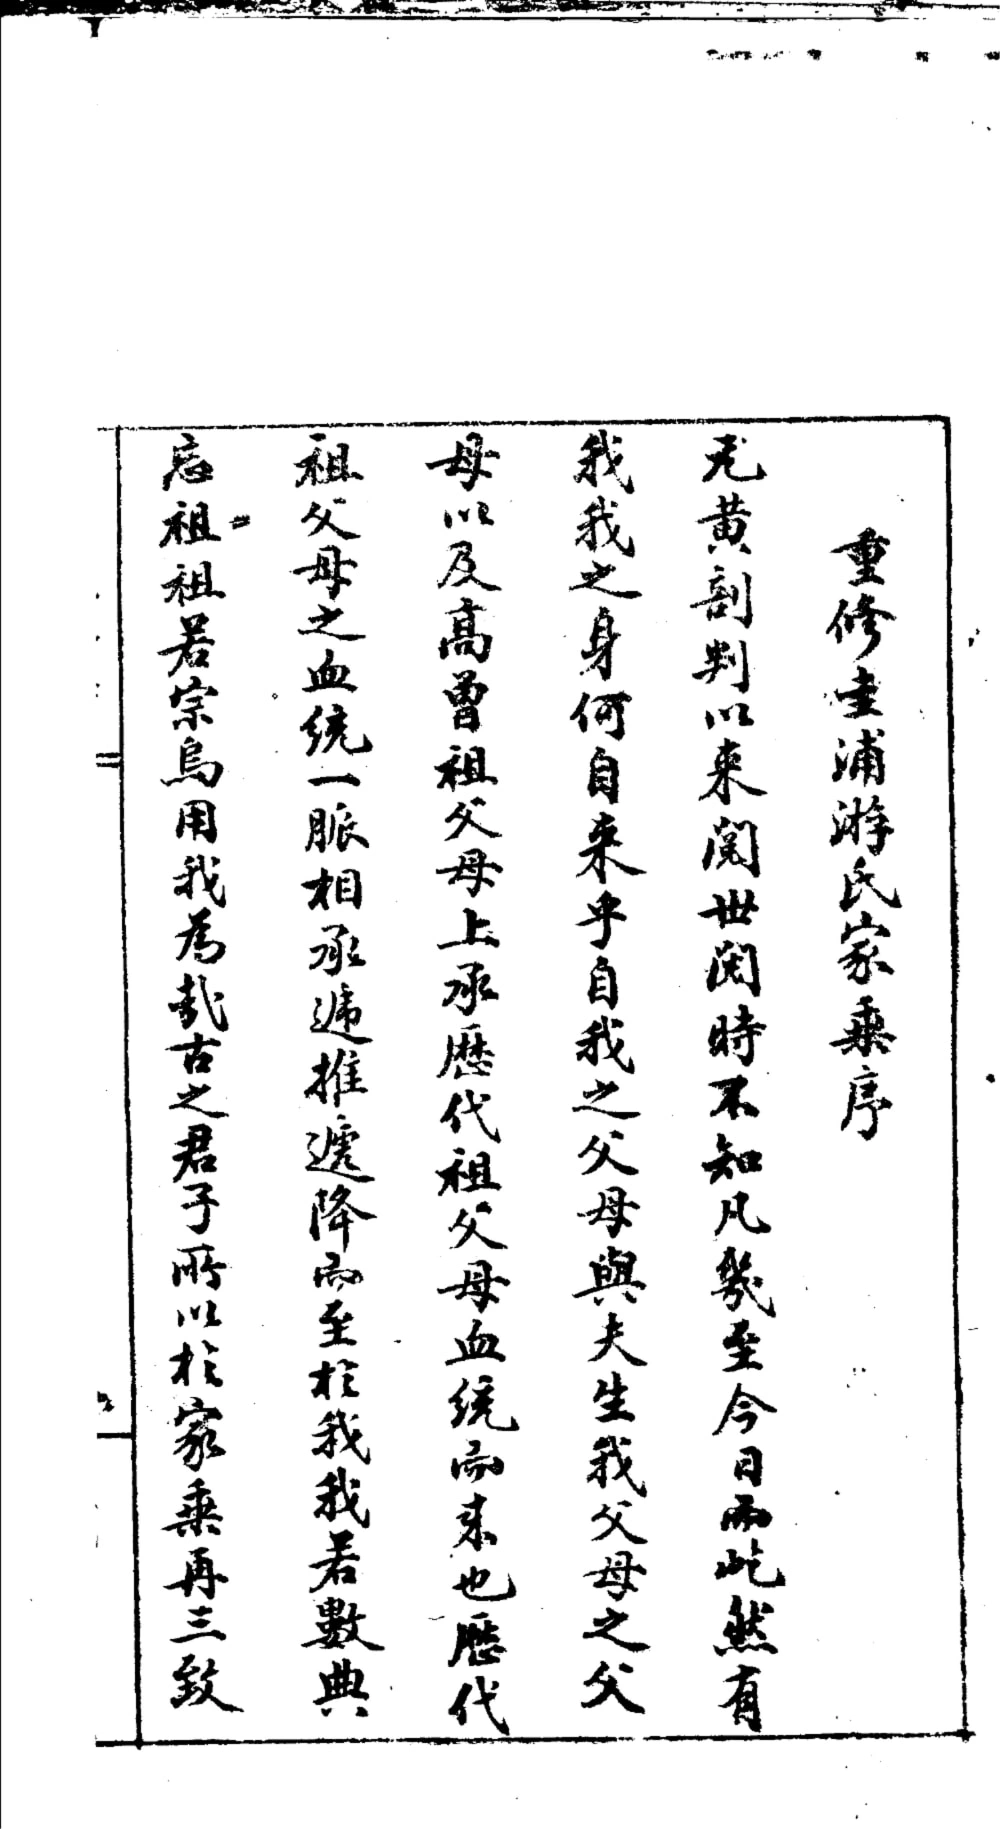 重修圭浦游氏家乘序
元黃剖判以來閱世閱時不知凡幾至今日而屹然有
我我之身何自來乎自我之父母與夫生我父母之父
母以及高曾祖父母上承歷代祖父母血統而來也歷代
祖父母之血統一脈相承遞推遞降而至於我我若數典
忘祖祖若宗烏用我為哉古之君子所以於家乘再三致